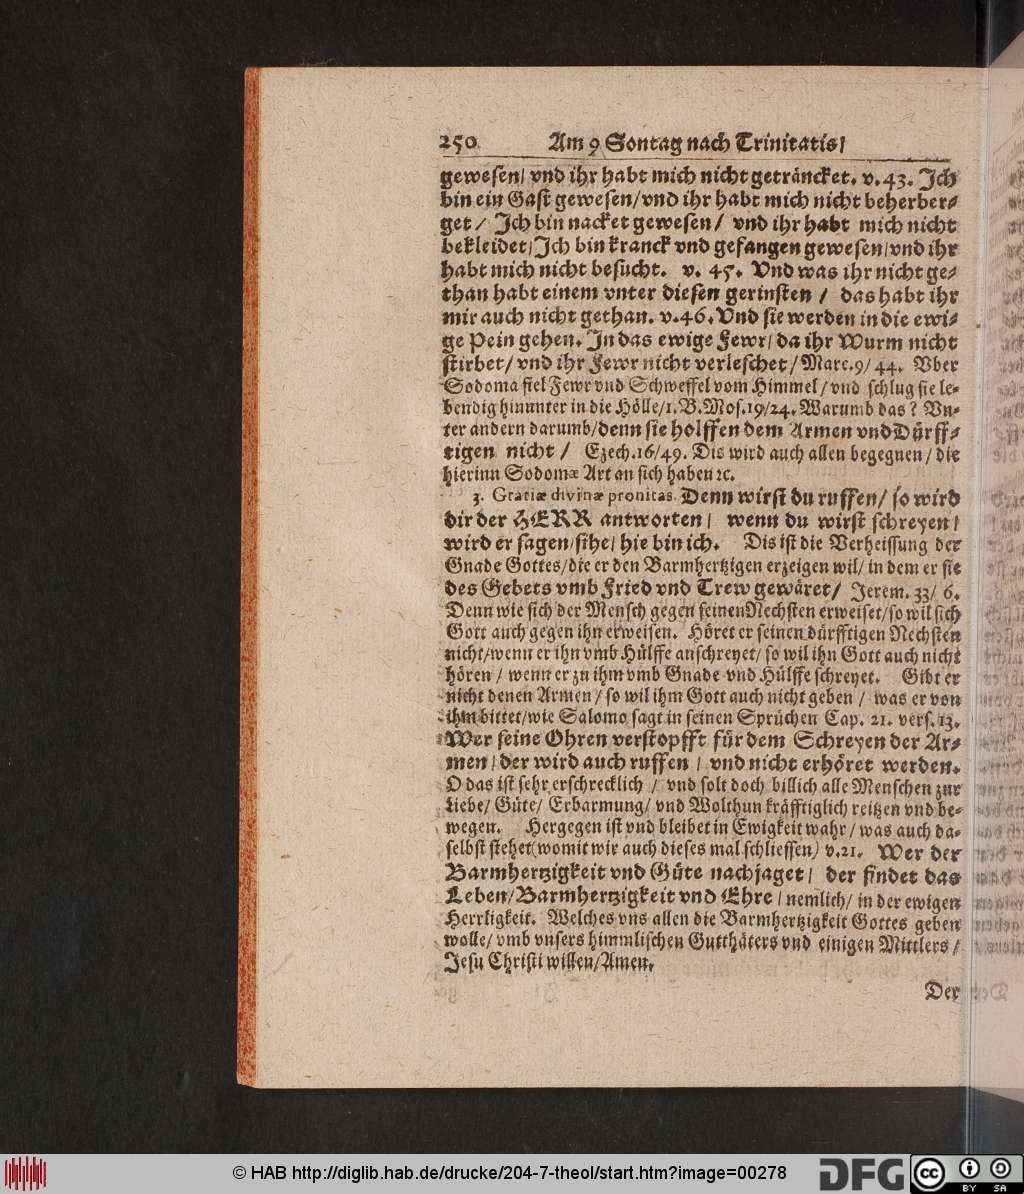 250 Am 9 Sontag nach Trinitatis/
gewesen/ vnd ihr habt mich nicht geträncket. v. 43. Ich
bin ein Gast gewesen/vnd ihr habt mich nicht beherber-
get / Ich bin nacket gewesen/ vnd ihr habt mich nicht
bekleidet/Ich bin kranck vnd gefangen gewesen/vnd ihr
habt mich nicht besucht. v. 45. Vnd was ihr nicht ge-
than habt einem vnter diesen gerinsten / das habt ihr
mir auch nicht gethan. v.46. Vnd sie werden in die ewi-
ge Pein gehen. In das ewige Fewr/ da ihr Wurm nicht
stirbet/ vnd ihr Fewr nicht verleschet/ Marc.9/ 44. Vber
Sodoma fiel Fewr vnd Schweffel vom Himmel/ vnd schlug sie le-
bendig hinunter in die Hölle/1.B.Mos.19/24. Warumb das? Vn-
ter andern darumb/denn sie holffen dem Armen vnd Dürff-
tigen nicht / Ezech.16/49. Dis wird auch allen begegnen/ die
hierinn Sodomæ Art an sich haben ꝛc.
3. Gratiæ divinæ pronitas. Denn wirst du ruffen/ so wird
dir der HERR antworten/ wenn du wirst schreyen/
wird er sagen/sihe/ hie bin ich. Dis ist die Verheissung der
Gnade Gottes/die er den Barmhertzigen erzeigen wil/ in dem er sie
des Gebets vmb Fried vnd Trew gewäret/ Jerem. 33/ 6.
Denn wie sich der Mensch gegen seinen Nechsten erweiset/so wil sich
Gott auch gegen ihn erweisen. Höret er seinen dürfftigen Nechsten
nicht/wenn er ihn vmb Hülffe anschreyet/ so wil ihn Gott auch nicht
hören / wenn er zu ihm vmb Gnade vnd Hülffe schreyet. Gibt er
nicht denen Armen/ so wil ihm Gott auch nicht geben / was er von
ihm bittet/wie Salomo sagt in seinen Sprüchen Cap. 21. vers. 13.
Wer seine Ohren verstopfft für dem Schreyen der Ar-
men/ der wird auch ruffen / vnd nicht erhöret werden.
O das ist sehr erschrecklich / vnd solt doch billich alle Menschen zur
Liebe/ Güte/ Erbarmung/ vnd Wolthun kräfftiglich reitzen vnd be-
wegen. Hergegen ist vnd bleibet in Ewigkeit wahr/ was auch da-
selbst stehet(womit wir auch dieses mal schliessen) v.21. Wer der
Barmhertzigkeit vnd Güte nachjaget/ der findet das
Leben/Barmhertzigkeit vnd Ehre/ nemlich/ in der ewigen
Herrligkeit. Welches vns allen die Barmhertzigkeit Gottes geben
wolle/ vmb vnsers himmlischen Gutthäters vnd einigen Mittlers /
Jesu Christi willen/Amen.
Der
© HAB http://diglib.hab.de/drucke/204-7-theol/start.htm?image=00278
DFG
cc BY SA